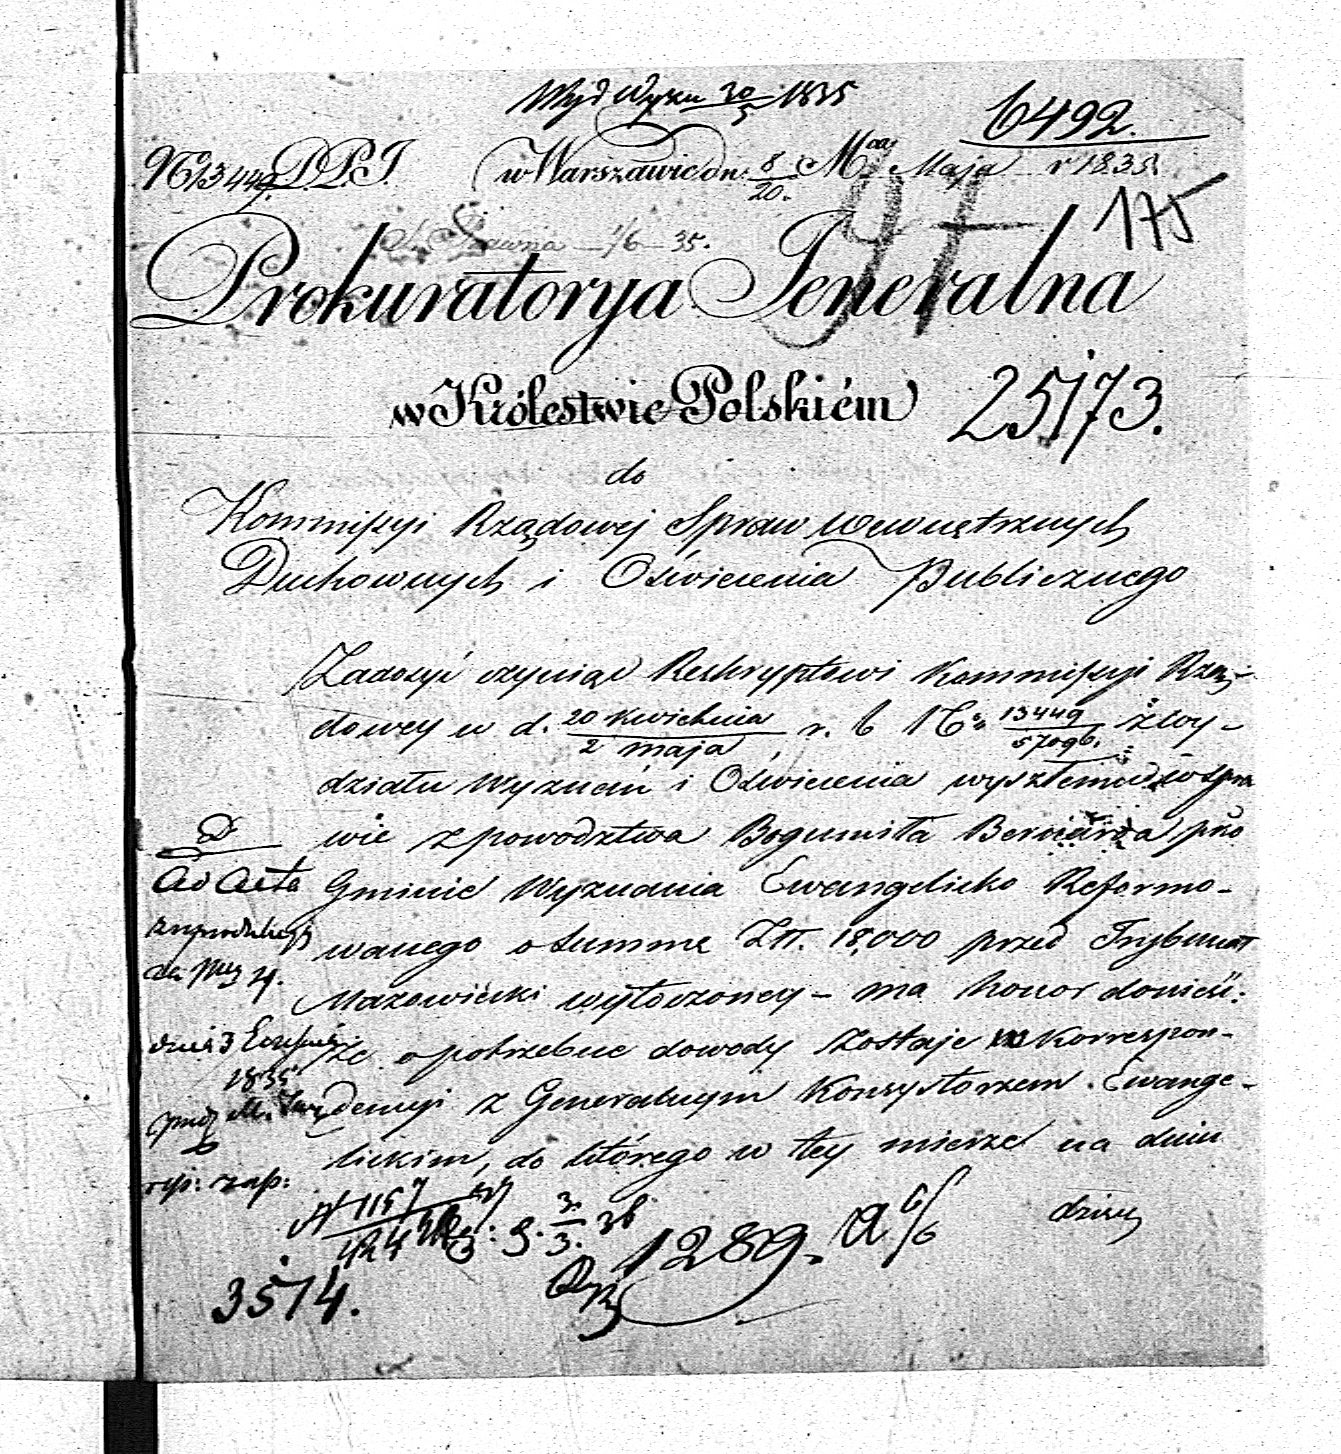 Wyd Wyzn 30/5 1835
6492.
No 13449. D.P.J. w Warszawie dn. 8/20. Maja r 1835.
175
97
1/6 35.
Prokuratorya Jeneralna
w Królestwie Polskiém
25173.
do
Kommissyi Rządowej Spraw Wewnętrznych
Duchownych i Oświecenia Publicznego
Zadosyć czyniąc Reskryptowi Kommissyi Rzą-
dowey z d. 20 Kwietnia/2 maja r. b No 13449/57096. z Wy-
działu Wyznań i Oświecenia wyszłemu w spra
wie z powodztwa Bogumiła Bernarda pko
Gminie Wyznania Ewangelicko Reformo-
wanego o summę Złt. 18,000 przed Trybunał
Mazowiecki wytoczoney - ma honor donieść:
że o potrzebne dowody zostaje w korrespon-
dencyi z Generalnym Konsystorzem Ewange-
lickim, do którego w tey mierze na dniu
dzisiey
Ad Acta
z reprodukcyą
za Mcy 4.
dnia 3 Czerwca
1835
rys: zap:
3574.
1289. a 6/6